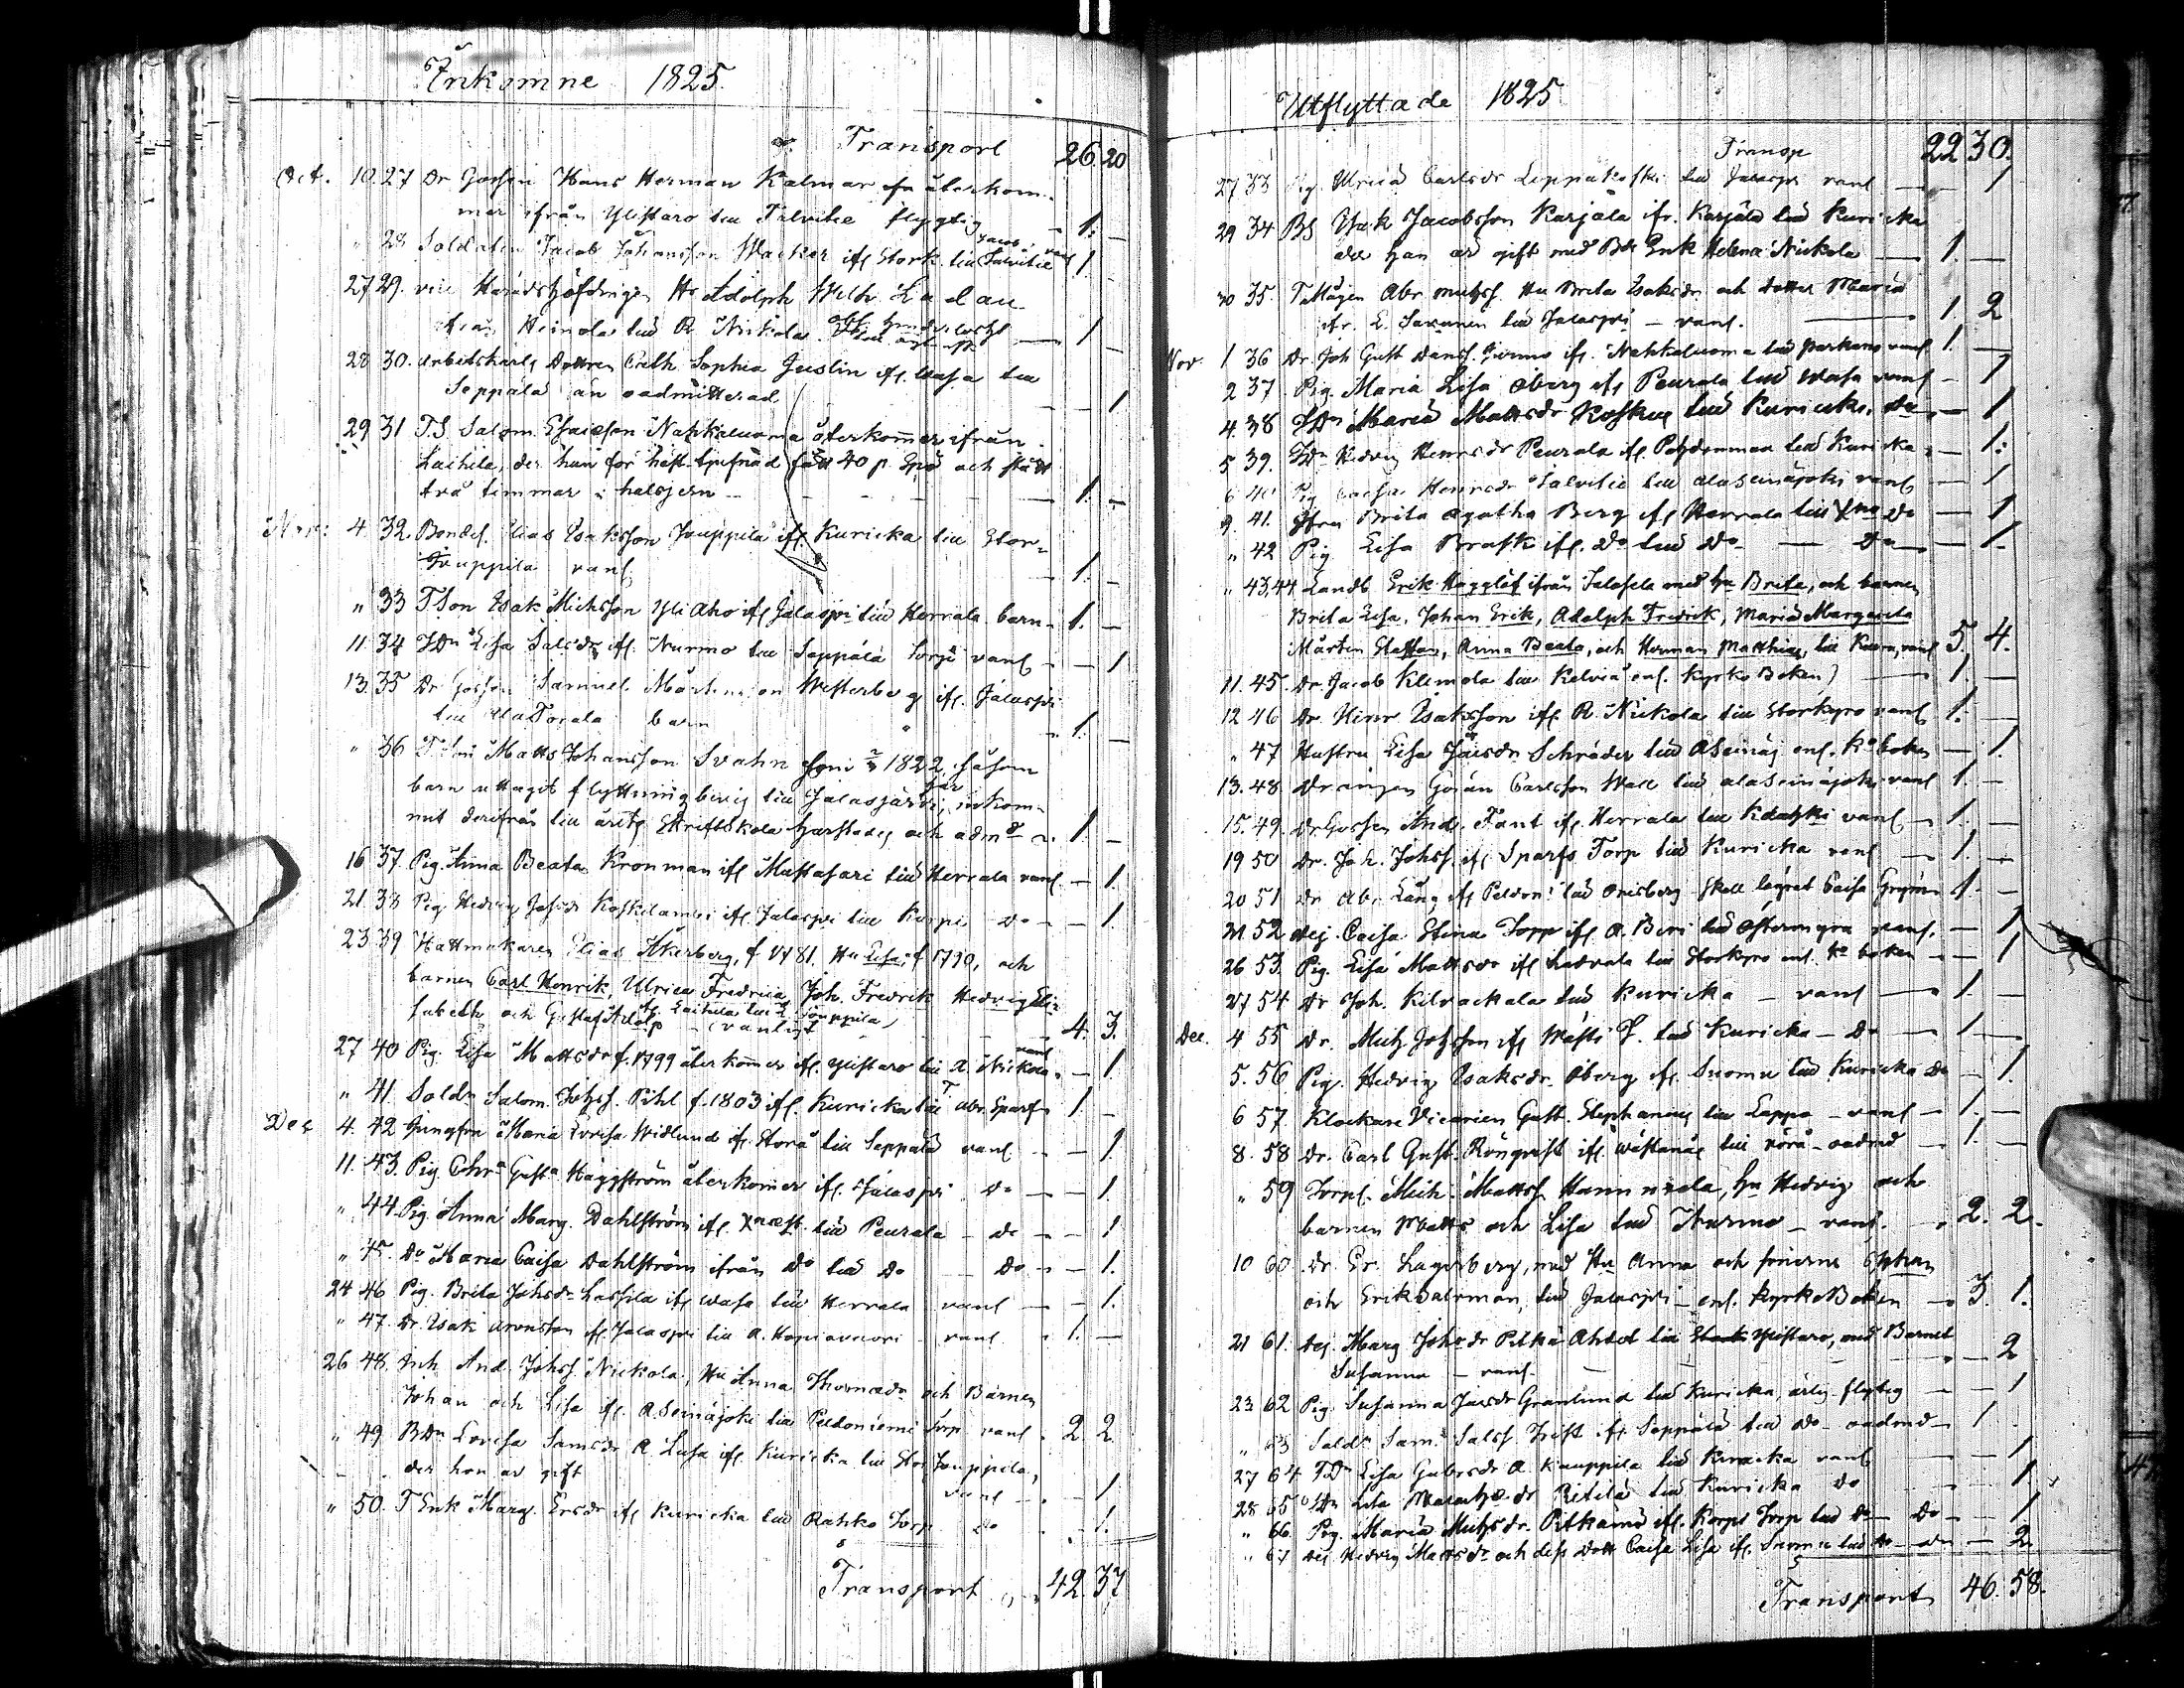 Inkomne 1825.
Transport 26. 20
Oct. 10. 27 Dr Gossen Hans Herman Kalmar som återkom-
mer ifrån Ylistaro till Talvitie flygtig — 1. —
" 28 Soldaten Jacob Johansson Wacker ifl Stork. till Talvitie vanl 1 —
27 29. vice Häradshöfdingen Hr Adolph Wilh. Ladau
ifrån Heinola till R. Nickola — 1 —
28 30. Arbetskarls Dottren Cath Sophia Juslin ifl. Wasa till
Seppälä än oadmitterad — — 1
29 31 T.S. Salom. Esaiesson Nahkaluoma återkommer ifrån
Laihela, der han för fått 40 p. Spö och stått
två timmar i halsjern — 1. —
Nov: 4. 32. Bondes. Elias Isaksson Jouppila ifl Kuricka till Stor-
Jouppila vanl — 1. —
" 33 TSon Isak Michsson Yliaho ifl Jalaspi till Herrala barn — 1. —
11. 34 TDr Lisa Salsdr ifl. Nurmo till Seppälä Torp vanl — — 1
13. 35 Dr Gossen Samuel Mårtensson Westerberg ifl. Jalaspi
till AlaTorala barn " 1. —
" 36 Matts Johansson Svahn som 1822, såsom
barn uttagit flyttningbevis till Jalasjärvi, har inkom-
mit derifrån till årets Skriftskola härstädes och adm:d 1. —
16 37. Pig. Anna Beata Kronman ifl Mustasari till Herrala vanl. — 1.
21. 38 Pig Hedvig Johsdr Koskilambi ifl. Jalaspi till Korpi do — — 1.
23 39 Hattmakaren Elias Åkerberg, f 1781. Hu Lisa f 1790, och
barnen Carl Henrik, Ulrica Fredrica, Joh. Fredrik Hedvig Eli-
sabeth och Gustaf Adolp ifl. Laihela till L Jouppila, (vanligt — 4. 3.
27 40 Pig. Lisa Mattsdr f. 1799 återkommer ifl. Ylistaro till A. Nickola vanl — 1
" 41. Soldn Salom. Johss. Pihl f. 1803 ifl. Kuricka till T Abr. Sparf 1. —
Dec 4. 42 Jungfru Maria Lovisa Widlund ifl. Storå till Seppälä vanl — — 1
11. 43. Pig Chra Gusta Häggström återkommer ifl. Jalaspi do — — 1.
" 44. Pig. Anna Marg. Dahlström ifl. Xnæst. till Peurala — do — — 1
" 45. Do Maria Caisa Dahlström ifrån do till do — Do — — 1.
24 46 Pig. Brita Johsdr Lassila ifl Wasa till Herrala vanl — — 1.
" 47. Dr. Isak Aronsson ifl. Jalaspi till A. Hapiavuori vanl — 1. —
26 48. Inh And. Johss. Nickola, Hu Anna Thomædr och Barnen
Johan och Lisa ifl. A.Seinäjoki till Peldoniemi Torp vanl — 2 2
" 49. BDr Lovisa Samsdr A. Lusa ifl. Kuricka till Stor Jouppila,
der hon är gift vanl — — 1
" 50. T Enk Marg. Ersdr ifl Kuricka till Rahko Torp do — — 1.
Transport 42. 37
Utflyttade 1825
Transp 22 30.
27 33 Pig. Ulrica Carlsdr Leppäkoski till Jalaspi vanl — — 1
29 34 BS Isak Jacobsson Karjala ifr. Karjala till Kuricka
der han är gift med Bde Enk Helena Nickola — 1 —
30 35. T.Mågen Abr. Mattss. Hu Brita Isaksdr och dotter Maria
ifr. E. Savanen till Jalaspi — vanl. — 1. 2
Nov. 1 36 Dr. Joh Gust Danss. ifl. Nahkaluoma till Parkano vanl 1. —
2 37. Pig. Maria Lisa Öberg ifl Peurala till Wasa vanl — 1
4. 38 TDr Maria Mattsdr Koskue till Kuricka. Do — 1
5 39. TDr Hedvig Henrsdr Peurala ifl. till Kuricka — 1.
6 40 Pig Caisa Henrsdr Talvitie till AlaSeinäjoki vanl — 1
9. 41. Jfru Brita Agatha Berg ifl Herrala till Xna Do — 1
" 42 Pig Lisa Brask ifl. Do till Do — Do — 1.
" 43,44 Landb Erik Hägglöf ifrån Jalasela med hu Brita, och barnen
Brita Lisa, Johan Erik, Adolph Fredrick, Maria Margareta
Mårten Staffan, Anna Beata, och Herman Matthias, till Kaura, vanl 5. 4.
11. 45. Dr Jacob Klemola till Kelviå enl. KyrkoBoken) — 1. —
12 46 Dr. Henr Isaksson ifl. R. Nickola till Storkyro vanl 1. —
" 47 Hustru Lisa Jacsdr Schräder till ASeinäj. enl. Ko boken — 1.
13. 48. Drängen Göran Carlsson Wall till AlaSeinäjoki vanl 1. —
15. 49. Dr Gossen And. Fant ifl. Herrala till vanl — 1. —
19 50 Dr. Joh. Johss. ifl Sparfs Torp till Kuricka vanl — 1. —
20 51 Dr Abr. Lång ifl Peldon: till Orisberg Skall lägrat Caisa 1. —
21 52 Pig. Caisa Stina Topp ifl A. Biri till Östermyra vanl. — 1
26 53. Pig. Lisa Mattsdr ifl. Ladvala till Storkyro enl. Ko boken — — 1
27 54 Dr Joh. Kilvackala till Kuricka — vanl — 1. —
Dec. 4 55 Dr. Mich Johsson ifl Mösti T. till Kuricka — Do — 1 —
5. 56 Pig. Hedvig Isaksdr. Öberg ifl. Suomu till Kuricka Do — 1.
6 57. Klockare Vicarien Gust. Stephanus till Lappo — vanl — 1. —
8. 58 Dr. Carl Gust. Rönqvist ifl. Wästanå till Vörå — oadmd — 1. —
" 59 Torpl. Mich. Mattss. Hannuxela, hu Hedvig och
barnen Matts och Lisa till Nurmo — vanl. — 2. 2.
10 60 Dr. Er. Lagerberg, med Hu Anna och sönerne
och Erik Salomon, till Jalaspi — enl. KyrkoBoken — 3. 1.
21 61. Pig. Marg Johsdr Pitkä Ahtot till Ylistaro, med Barnet
Susanna — vanl. — — 2
23 62 Pig Susanna Jacsdr Granlund till Kuricka, ärlig flytig — — 1
" 63 Soldn Sam. Salss. Frist ifl. Seppälä till do — oadmd — 1
27 64 TDr Lisa Gabrsdr A. Kauppila till Kuricka vanl — — 1
28 65 TDr Lisa dr Ritilä till Kuricka do — 1
" 66. Pig. Maria Michsdr. Pitkänä ifl. Korpi Torp till Do — Do — 1
" 67 Pig Hedvig Mattsdr och dess Dott Caisa Lisa ifl. Suomu till do — do — 2
Transport 46. 58.